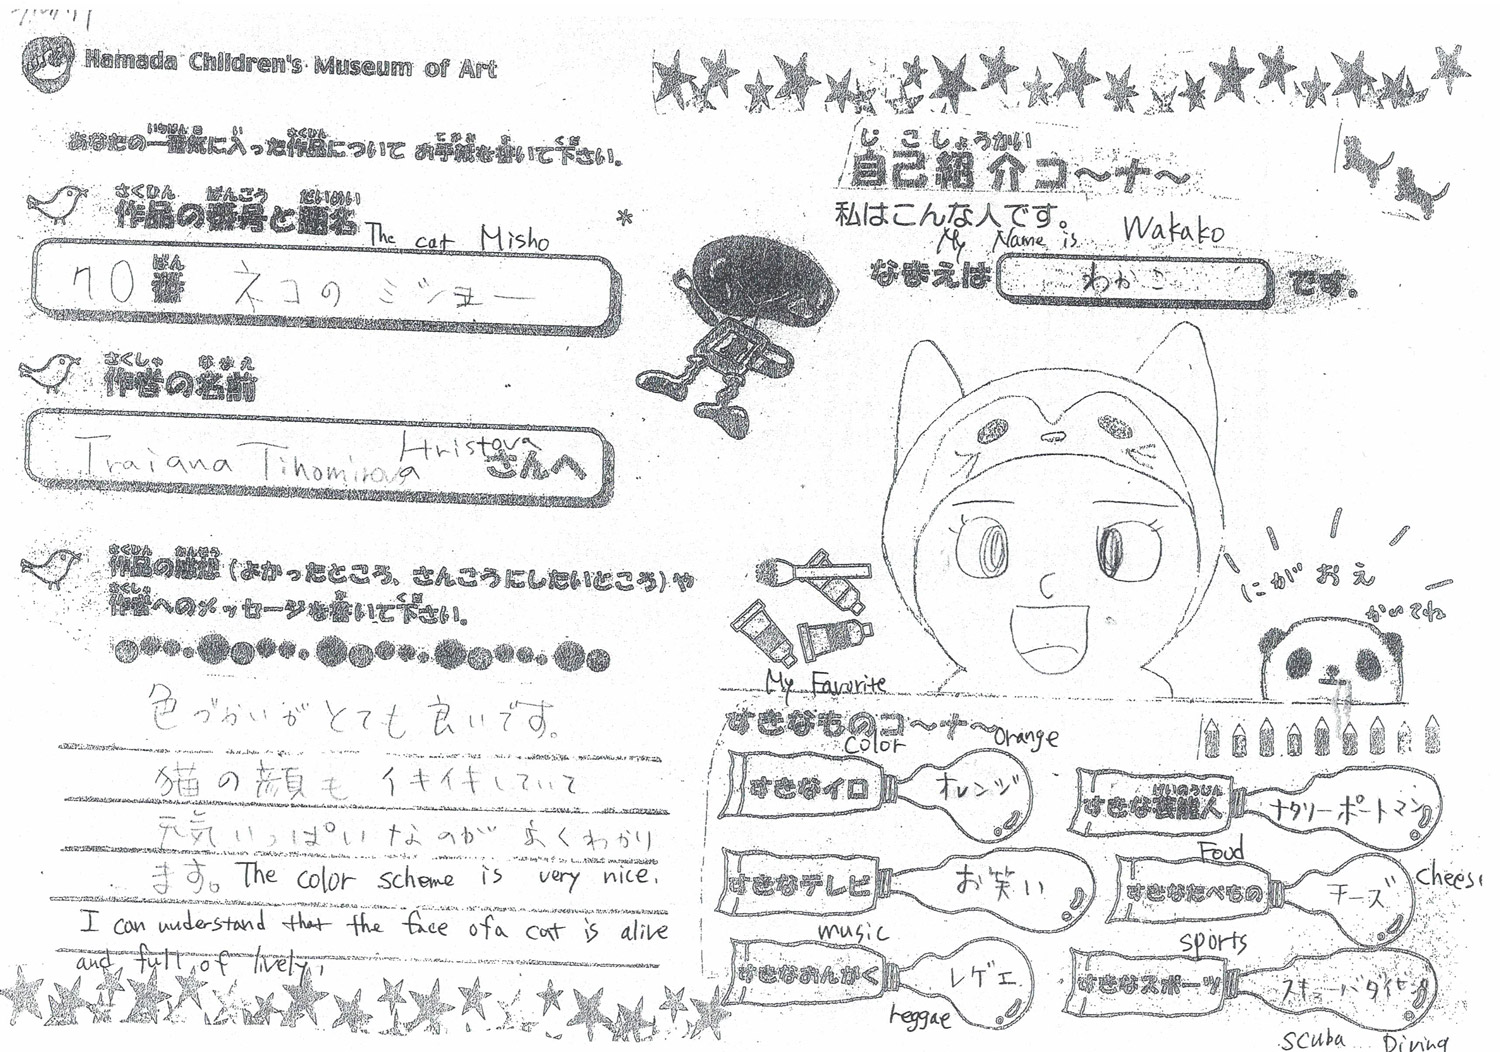 Hamada Children's Museum of Art
あなたの一番気に入った作品について お手紙を書いて下さい。
作品の番号と題名
The cat Misho
70番 ネコのミショー
作者の名前
Traiana Tihomirova Hristova さんへ
作品の感想(よかったところ、さんこうにしたいところ)や
作者へのメッセージを書いて下さい。
色づかいがとても良いです。
猫の顔も イキイキしていて
元気いっぱいなのが よくわかり
ます。The color scheme is very nice.
I can understand that the face of a cat is alive
and full of lively,
じこしょうかい
自己紹介コ〜ナ〜
私はこんな人です。
My Name is Wakako
なまえは わかこ です。
にがおえ
かいてね
My Favorite
すきなものコ〜ナ〜
Color Orange
すきなイロ オレンジ
すきなテレビ お笑い
music
すきなおんがく レゲエ
reggae
げいのうじん
すきな芸能人 ナタリーポートマン
Food
すきなたべもの チーズ
Cheese
sports
すきなスポーツ スキューバダイビング
scuba Diving